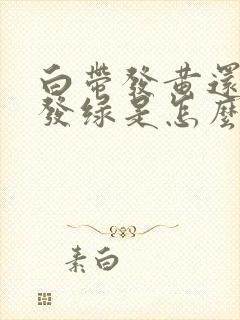 白帶發黃還
發綠是怎麼
素白